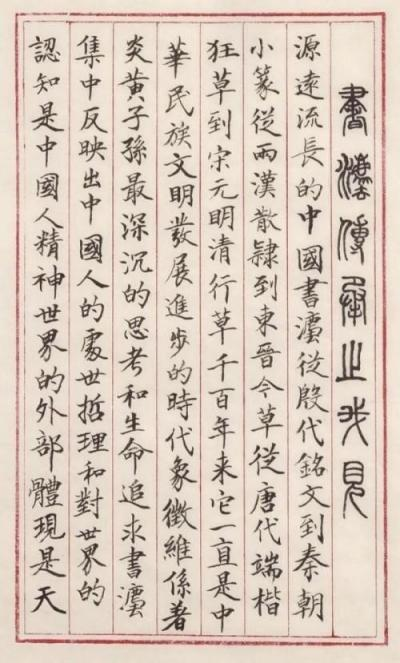 書灋傳承之我見
源遠流長的中國書灋從殷代銘文到秦朝
小篆從兩漢散隸到東晉今草從唐代端楷
狂草到宋元明清行草千百年来它一直是中
華民族文明發展進步的時代象徵維係著
炎黃子孫最深沉的思考和生命追求書灋
集中反映出中國人的處世哲理和對世界的
認知是中國人精神世界的外部體現是天